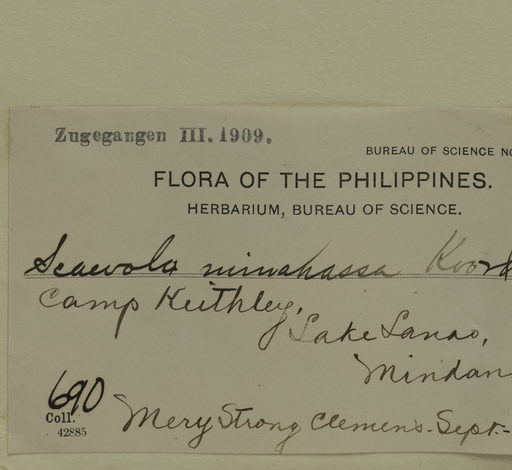 Zugegangen III. 1909.
BUREAU OF SCIENCE NO
FLORA OF THE PHILIPPINES.
HERBARIUM, BUREAU OF SCIENCE.
Scaevola minahassa Koord
Camp Keithley,
Lake Lanao,
Mindan
690
Coll. Mery Strong Clemens. Sept.-
42885